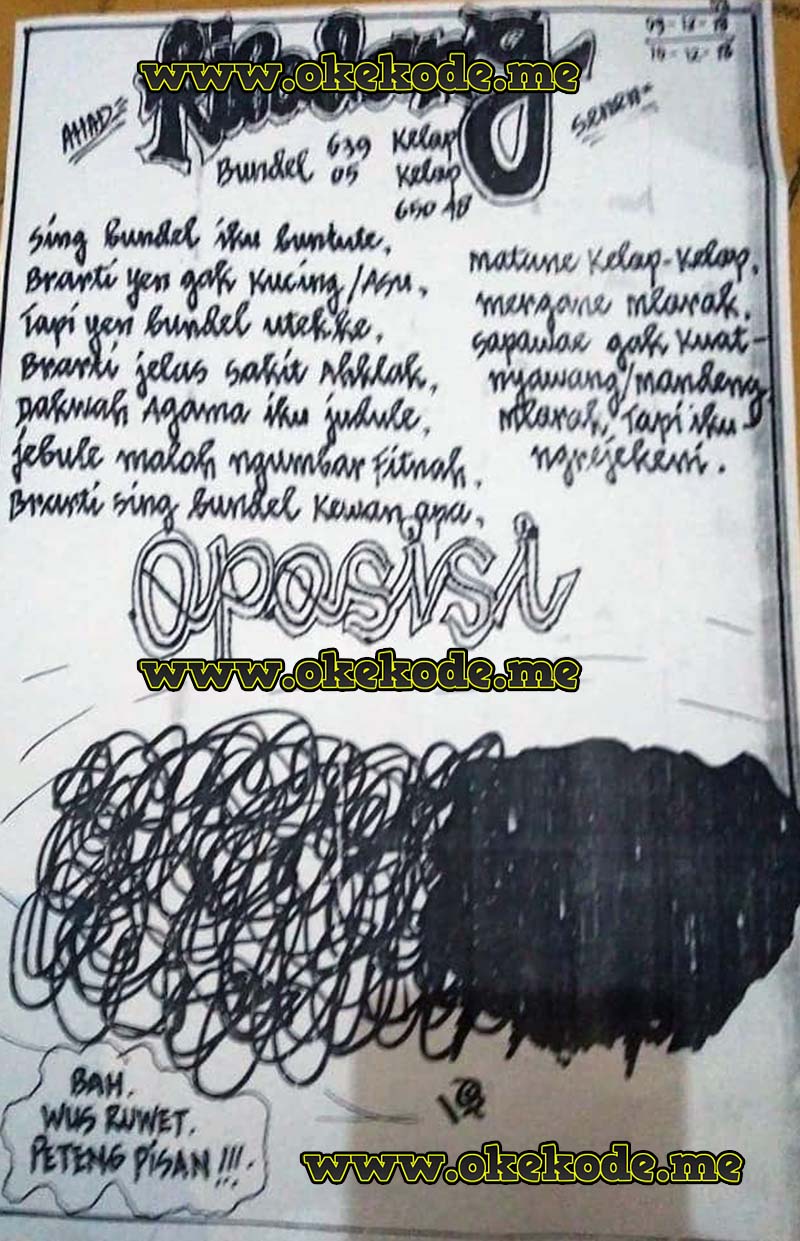 www.okekode.me
09 - 12 - 18
10 - 12 - 18
AHAD=
Senen=
Bundel 639 Kelap
05 Kelap
650 AB
Sing bundel iku buntute,
Brarti yen gak Kucing/Asu,
Tapi yen bundel utekke,
Brarti jelas Sakit Ahklak,
Dakwah Agama iku judule,
jebule malah ngumbar Fitnah,
Brarti Sing bundel Kewan apa,
matune Kelap-Kelap,
mergane mlarak,
sapawae gak Kuat-
nyawang/mandeng
mlarak, Tapi iku-
ngrejekeni.
oposisi
www.okekode.me
BAH.
WUS RUWET.
PETENG PISAN!!!
www.okekode.me